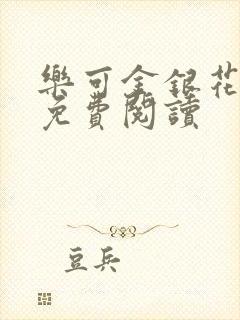 樂可金銀花
免費閱讀
豆兵